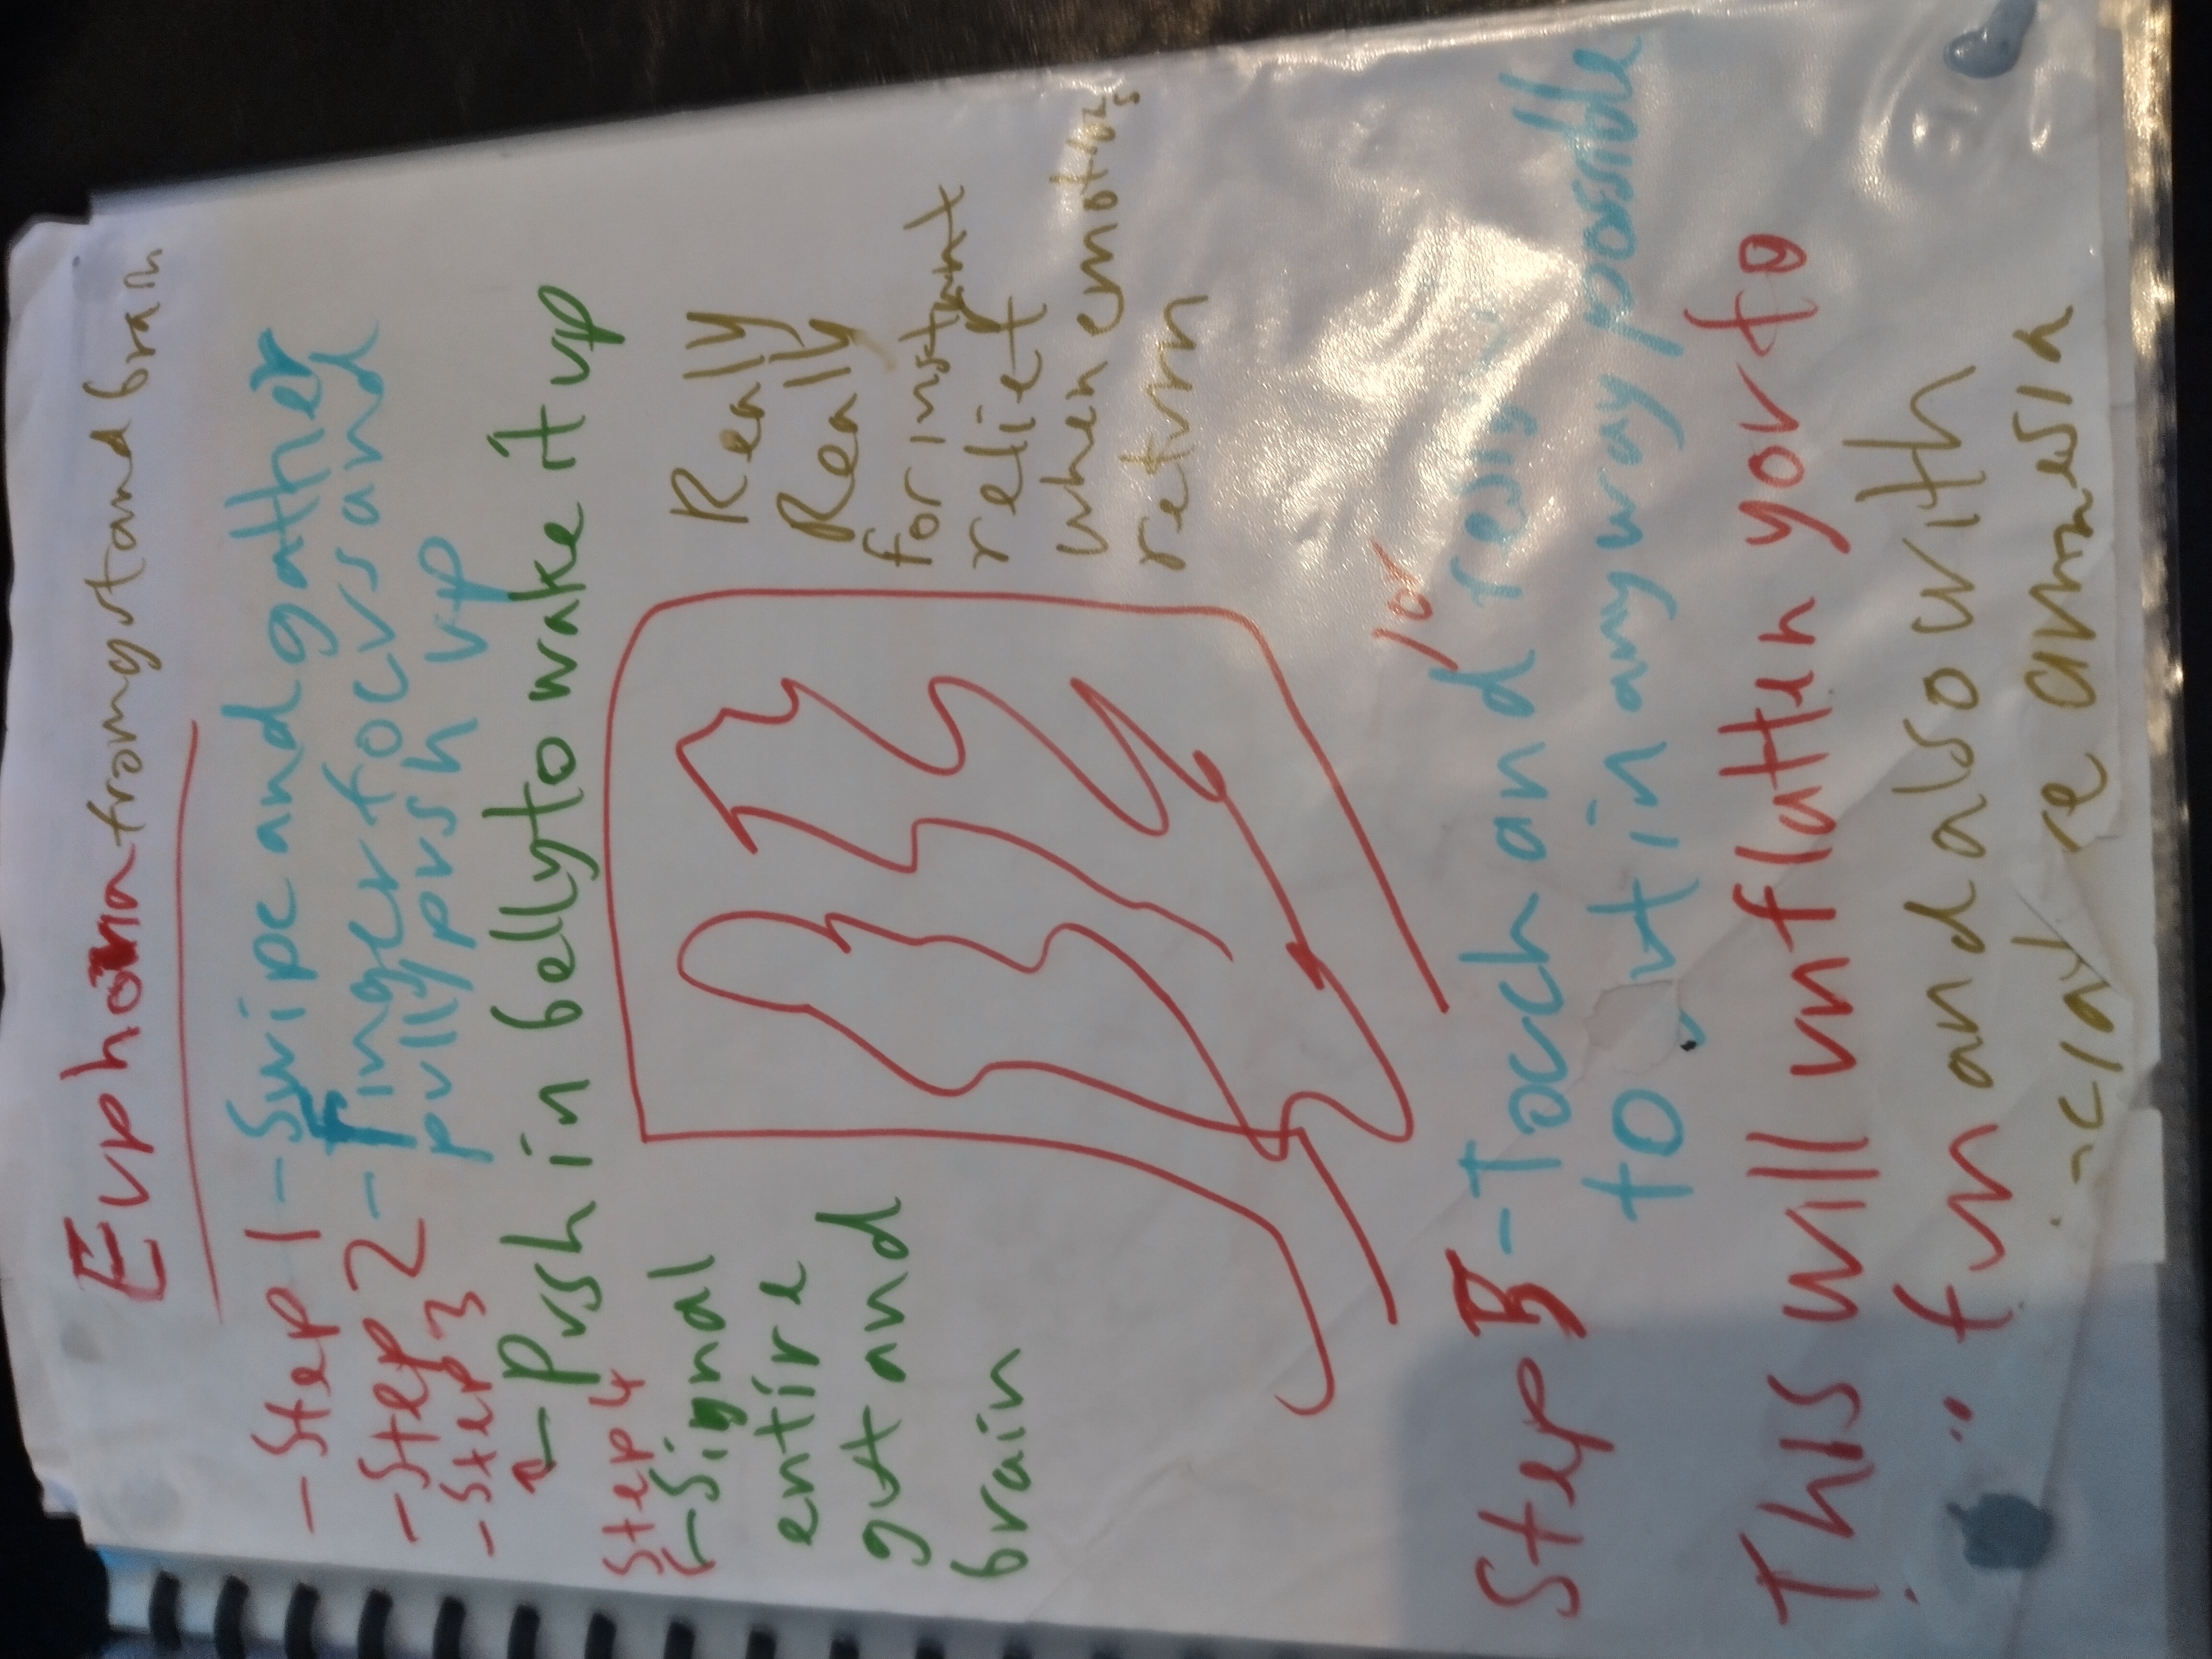 Euphoria from gut and brain
- Step 1 - Swipe and gather
- Step 2 - Finger focus and
- Step 3 pully push up
- Push in belly to wake it up
Step 4
- Signal
entire
gut and
brain
Really
Really
for instant
relief
when emotions
return
/or
Step 5 - Toch and
to ut in any way possible
This will unflatten yor fo
fun and also with
re amnesia